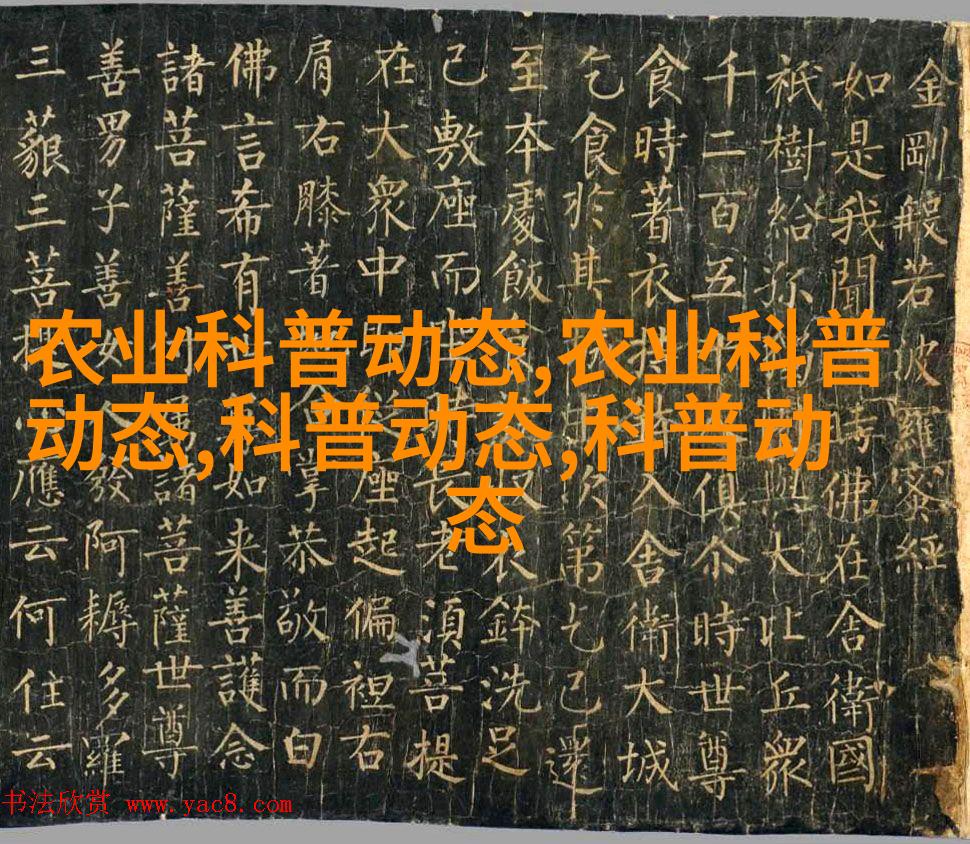 金剛般若波羅蜜經
如是我聞一時佛在舍衛國
祇樹給孤與大比丘眾
千二百五十俱尒時世尊
食時著衣持入舍衛大城
乞食於其城中次第乞已還
至本處飯食收衣鉢洗足
已敷座而坐時長老須菩提
在大眾中即從座起偏袒右
肩右膝著地合掌恭敬而白
佛言希有世如来善護念
諸菩薩善付囑諸菩薩世尊
善男子善女人發阿耨多羅
三藐三菩提心應云何住云
农业科普动态,农业科普
动态,科普动态,科普动
态
书法欣赏 www.yac8.com